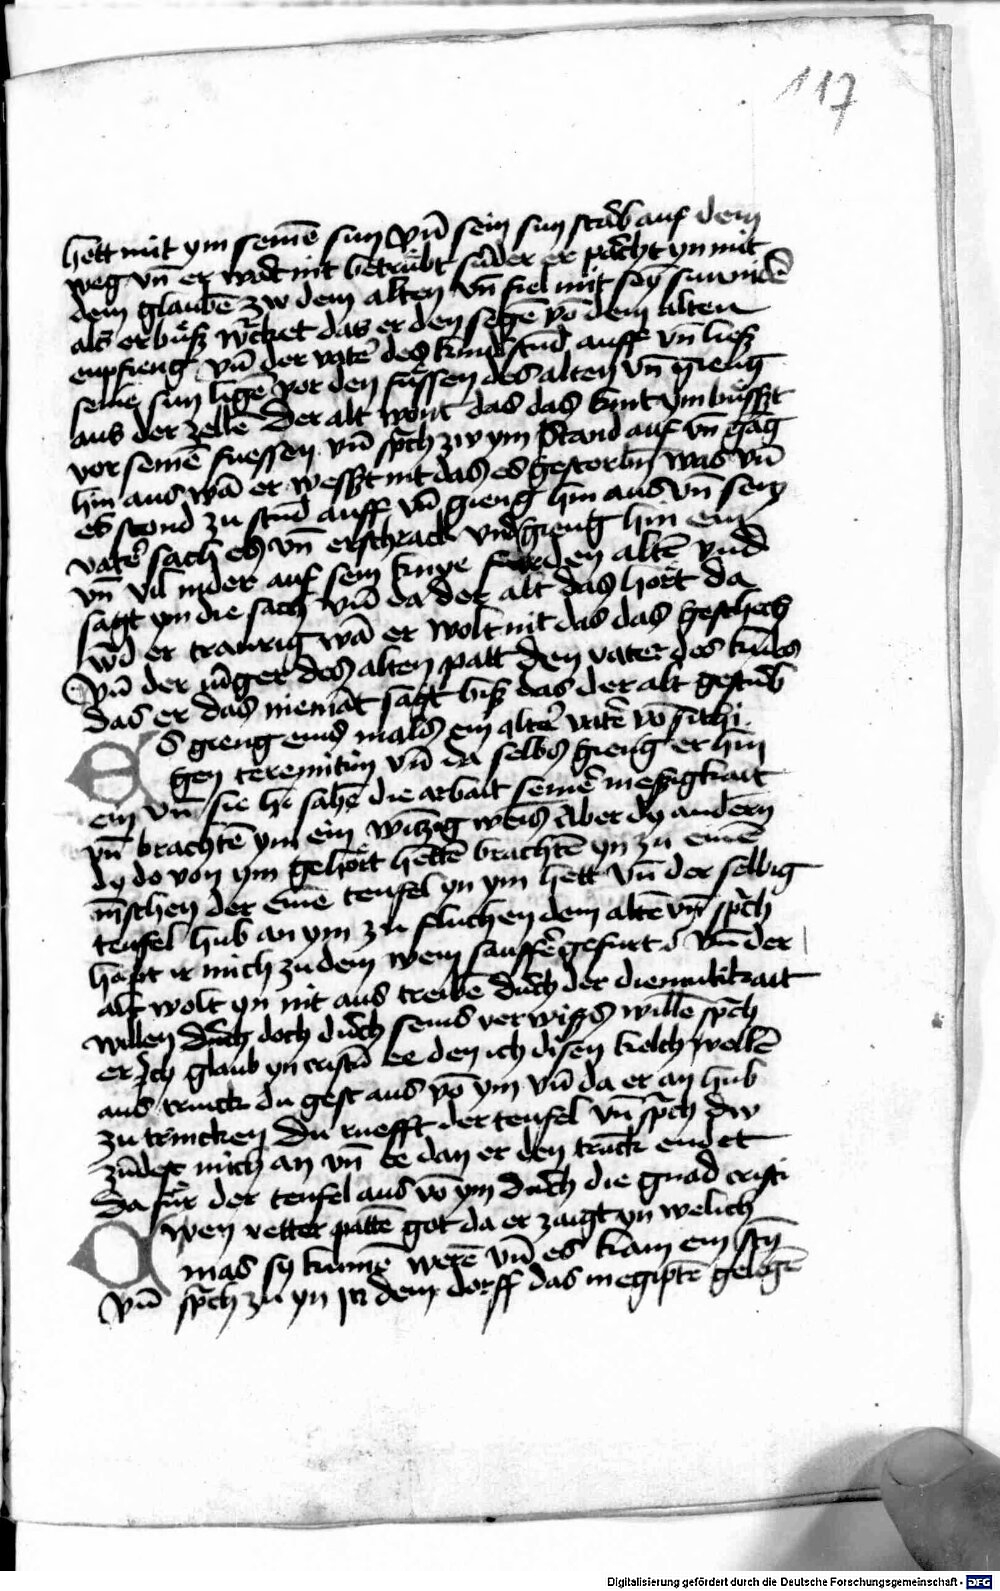 117
hett mit ym seinē sun Vn̄ sein sun starb auf dem
weg vn̄ er ward nit betrübt sunder er pracht yn mit
dem glaubē zw dem alten vn̄ fiel mit seī sun nider
als er büsz wircket das er den segē vō dem alten
enpfieng vn̄ der vater des kinds stūd auff vn̄ liesz
seinē sun lige vor den füssen des alten vn̄ gieng
aus der zellē Der alt wont das das kint ym büsszt
vor seinē fuessen vn̄ sprach zw ym Stand auf vn̄ gāg
hin aus wā er wesszt nit das es gestorbn̄ was vn̄
es stond zu stūd auff vn̄ gieng hin aus vn̄ sein
vater sach es vn̄ erschrack vnd gieng hin ein
vn̄ vil nider auf sein knye für den altē vnd
sagt ym die sach vn̄ da der alt das hort da
wd er traurig wā er wolt nit das das geschech
Vn̄ der iūger des alten patt den vater des kinds
das er das niemāt sagt bisz das der alt gestürb
Es gieng eins mals ein alter vater vō sithi
gen teremitim vn̄ da selbs gieng er hin
ein vn̄ sie hī sahē die arbait seiner messigkait
vn̄ brachtē ym ein winzig weis Aber dy andern
dy do von ym gehört hettē brachtē yn zu einē
mēschen der einē teufel yn ym hett vn̄ der selbig
teufel hub an ym zu fluchen dem altē vn̄ sprach
habt ir mich zu dem wein sauffer gefurt Vn̄ der
alt wolt yn nit aus treibē durch der diemutikait
willen durch doch durch seins verwissens willē sprach
er Ich glaub yn cristū ee den ich disen kelch wellē
aus trinck du gest aus vō ym vn̄ da er an hub
zu trincken Du ruefft der teufel vn̄ sprach Dw
zündest mich an vn̄ ee dan er den trūck endet
Da für der teufel aus vō ym durch die gnad cristi
Zwen vetter pattē got da er zaigt yn welich
mas sy kumē werē vn̄ es kam ein stȳ
Vn̄ sprach zu yn In dem dorff das in egiptē gelegē
Digitalisierung gefördert durch die Deutsche Forschungsgemeinschaft - DFG